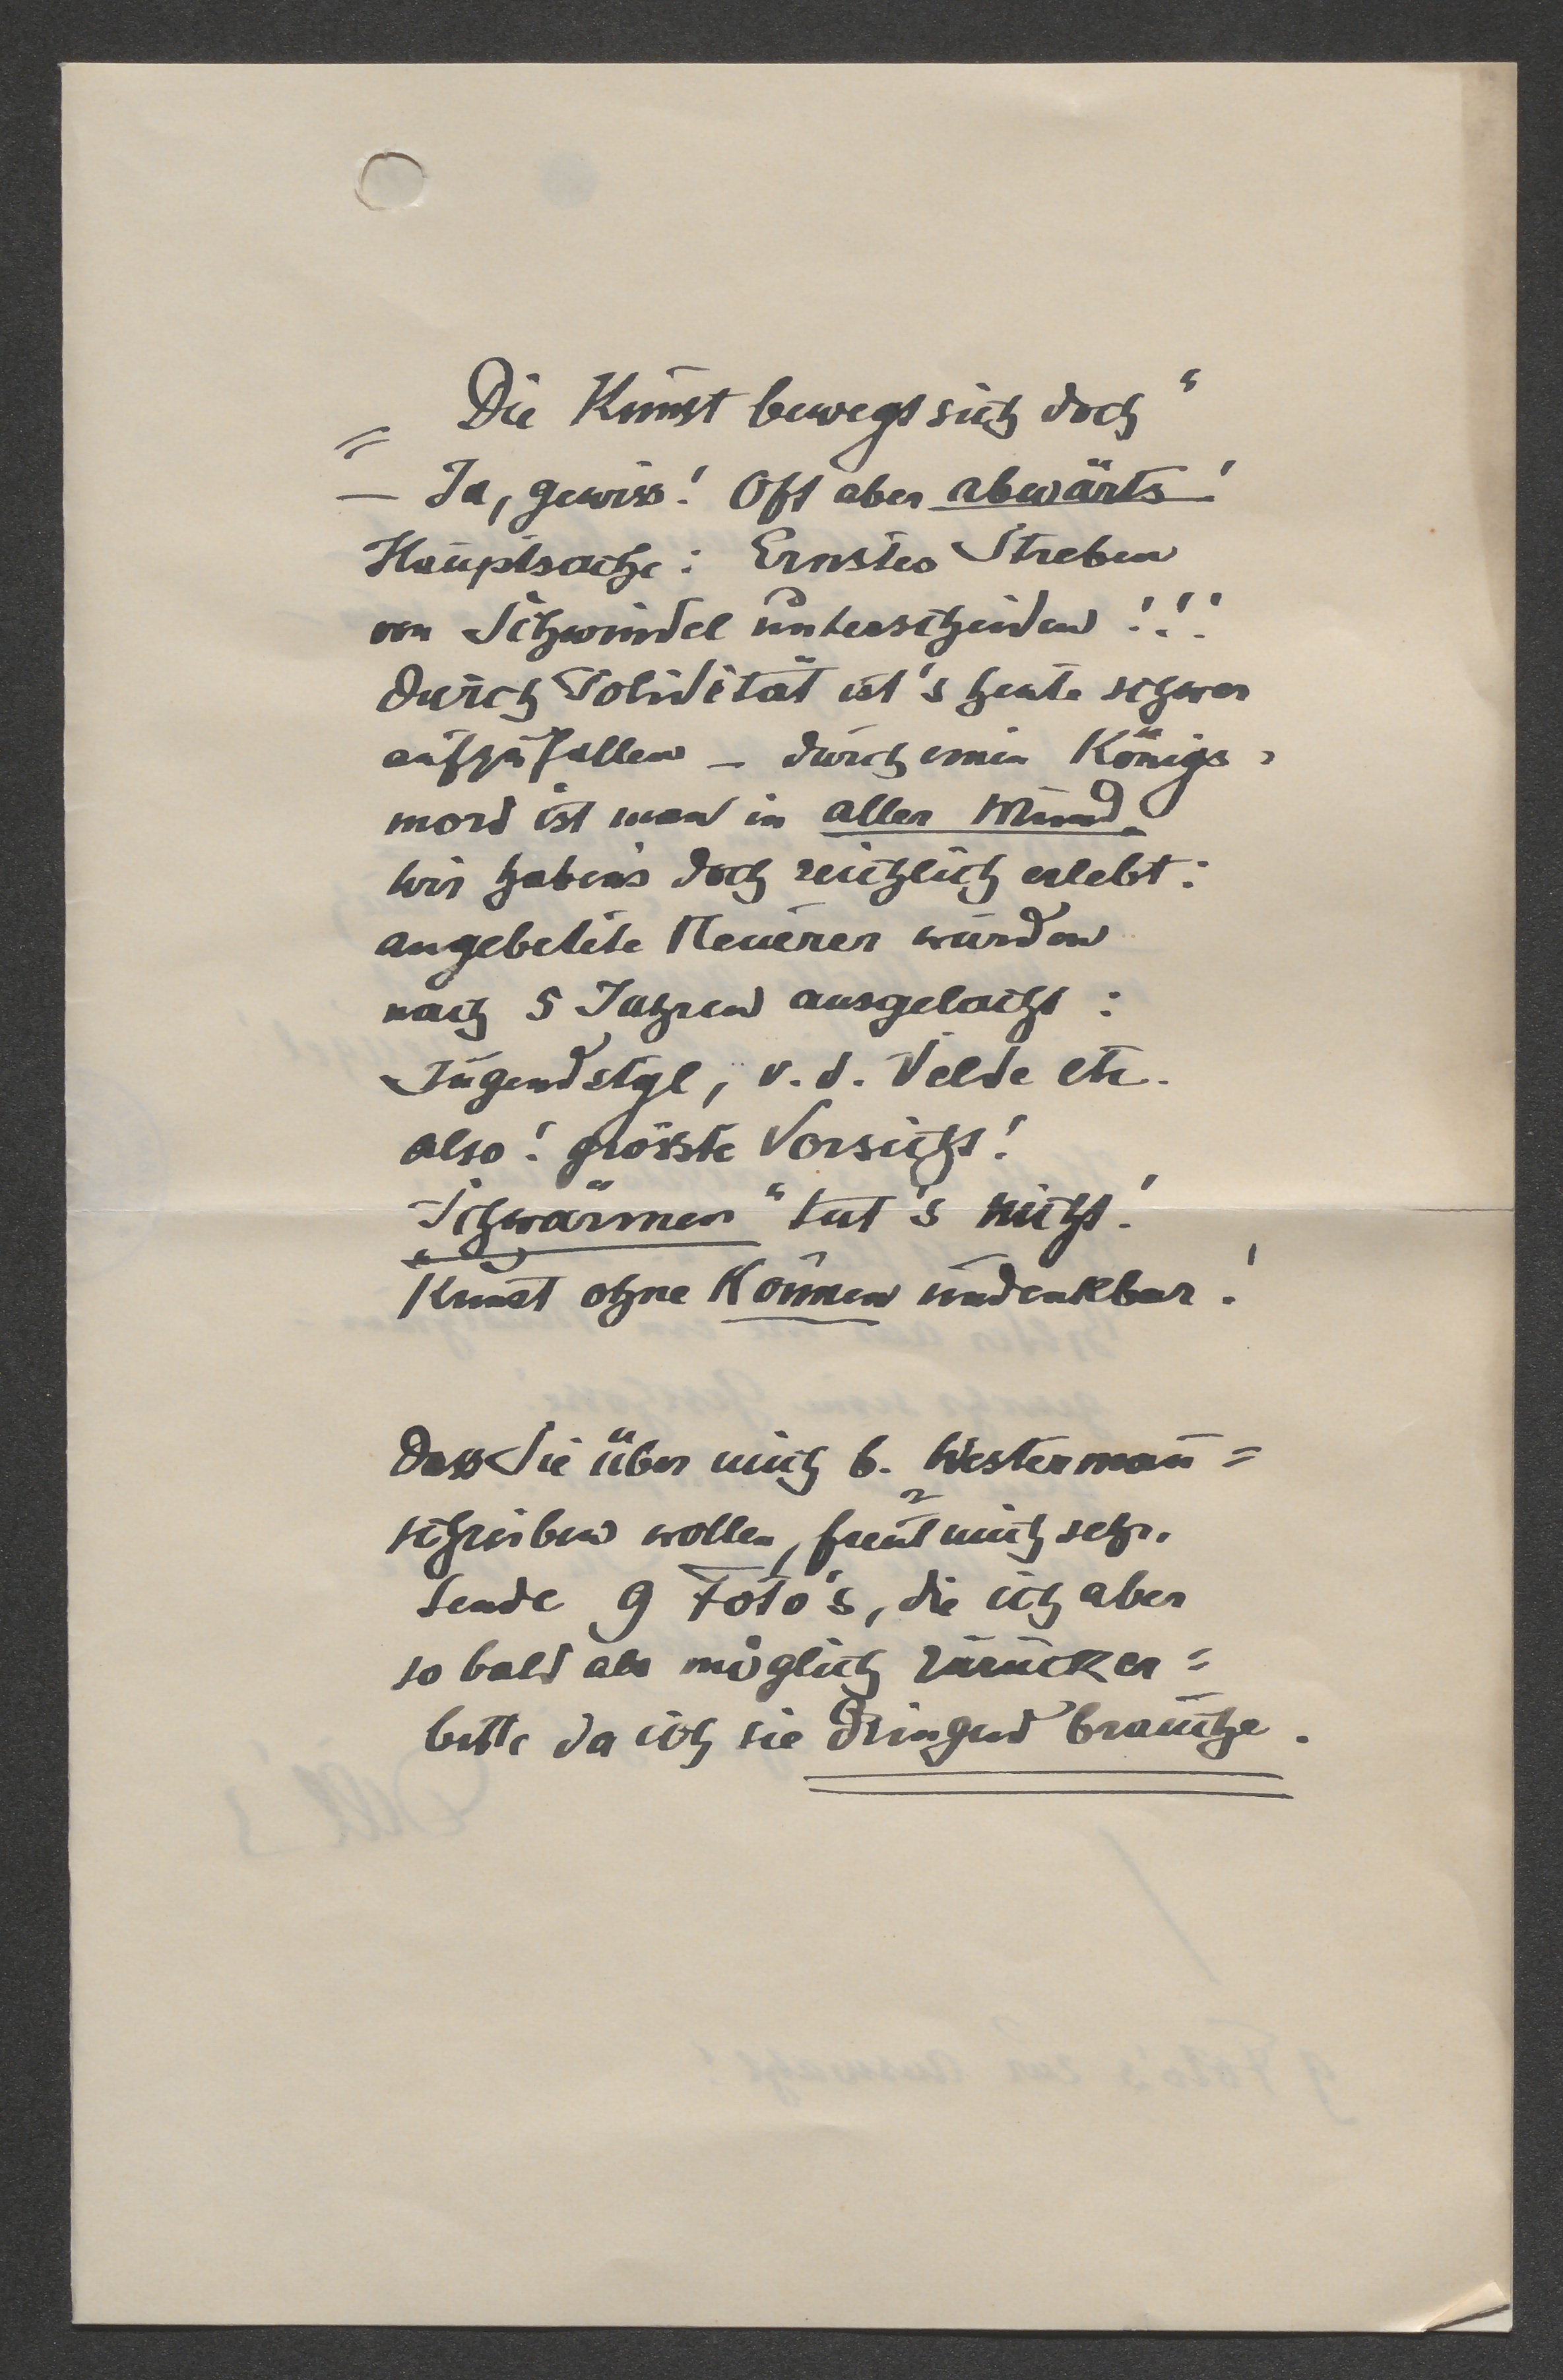 „Die Kunst bewegt sich doch“
— Ja, gewiss! Oft aber abwärts!
Hauptsache: Ernstes Streben
von Schwindel unterscheiden!!!
Durch Solidität ist's heute schwer
aufzufallen – durch einen Königs-
mord ist man in aller Mund.
Wir haben's doch reichlich erlebt:
angebetete Neuerer wurden
nach 5 Jahren ausgelacht:
Jugendstyl, v. d. Velde etc.
also! grösste Vorsicht!
„Schwärmen“ tut's nicht!
Kunst ohne Können undenkbar!
Dass Sie über mich b. Westermann =
schreiben wollen, freut mich sehr.
Sende 9 Foto's, die ich aber
so bald als möglich zurücker=
bitte da ich sie dringend brauche.